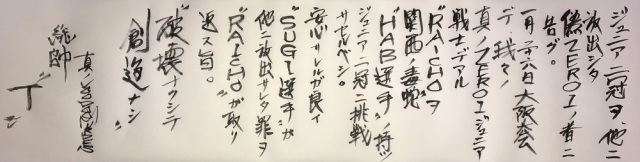 ジュニア二冠ヲ、他ニ
放出シタ
偽ZERO1ノ者ニ
告グ。
一月二八日大阪大会
デ我々ノ
真ノZERO1ジュニア
戦士デアル
"RAICHO"ヲ
関西ノ毒蛇
"HAB選手"ノ持ツ
ジュニア二冠ニ挑戦
サセルベシ。
安心サレルガ良イ
"SUGI選手"ガ
他ニ放出サレタ罪ヲ
"RAICHO"が取リ
返ス旨。
破壊ナクシテ
創造ナシ
真ノ
総帥